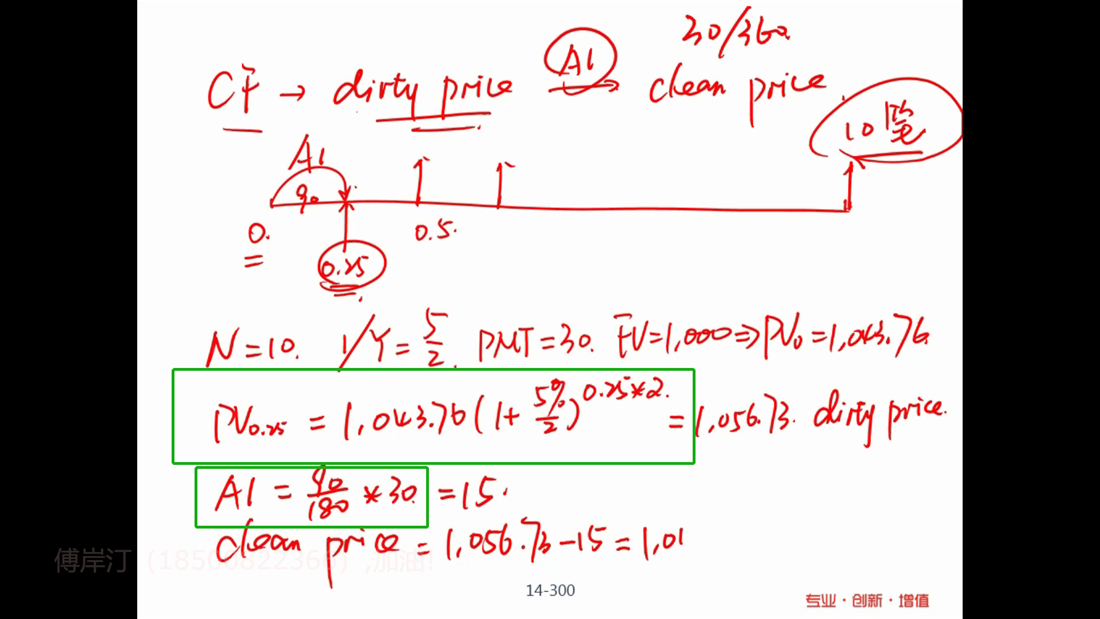 30/360.
CF → dirty price AI → clean price
10笔
AI
90
0. 0.25 0.5.
N=10. I/Y=5/2. PMT=30. FV=1,000⇒PV₀=1,043.76
PV₀.₂₅ = 1,043.76(1+5%/2)^0.25*2. =1,056.73. dirty price.
AI = 90/180 *30. =15.
clean price = 1,056.73-15=1,01
傅岸汀
,加油!
14-300
专业·创新·增值